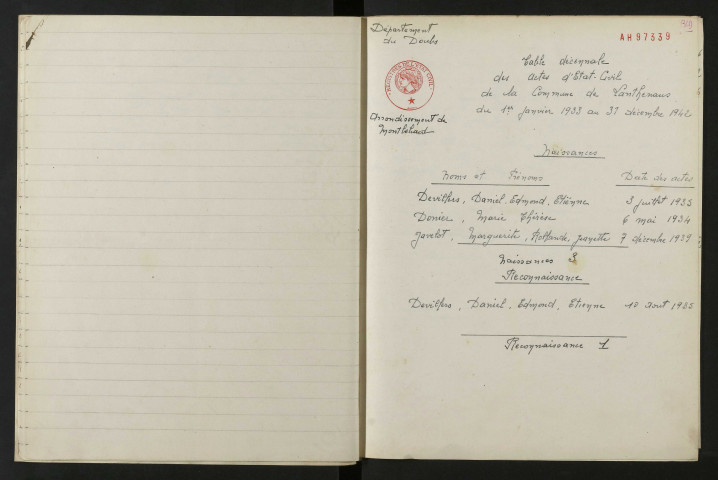 Département
du Doubs
AH 97339
Table décennale
des actes d'Etat-Civil
de la Commune de Lanthenans
du 1er janvier 1933 au 31 décembre 1942
Arrondissement de
Montbéliard
Naissances
Noms et Prénoms Date des actes
Devillers, Daniel, Edmond, Etienne 3 juillet 1935
Donier, Marie Thérèse 6 mai 1934
Javelot, Marguerite, Jeannette 7 décembre 1939
Naissances 3
Reconnaissance
Devillers, Daniel, Edmond, Etienne 10 Aout 1935
Reconnaissance 1